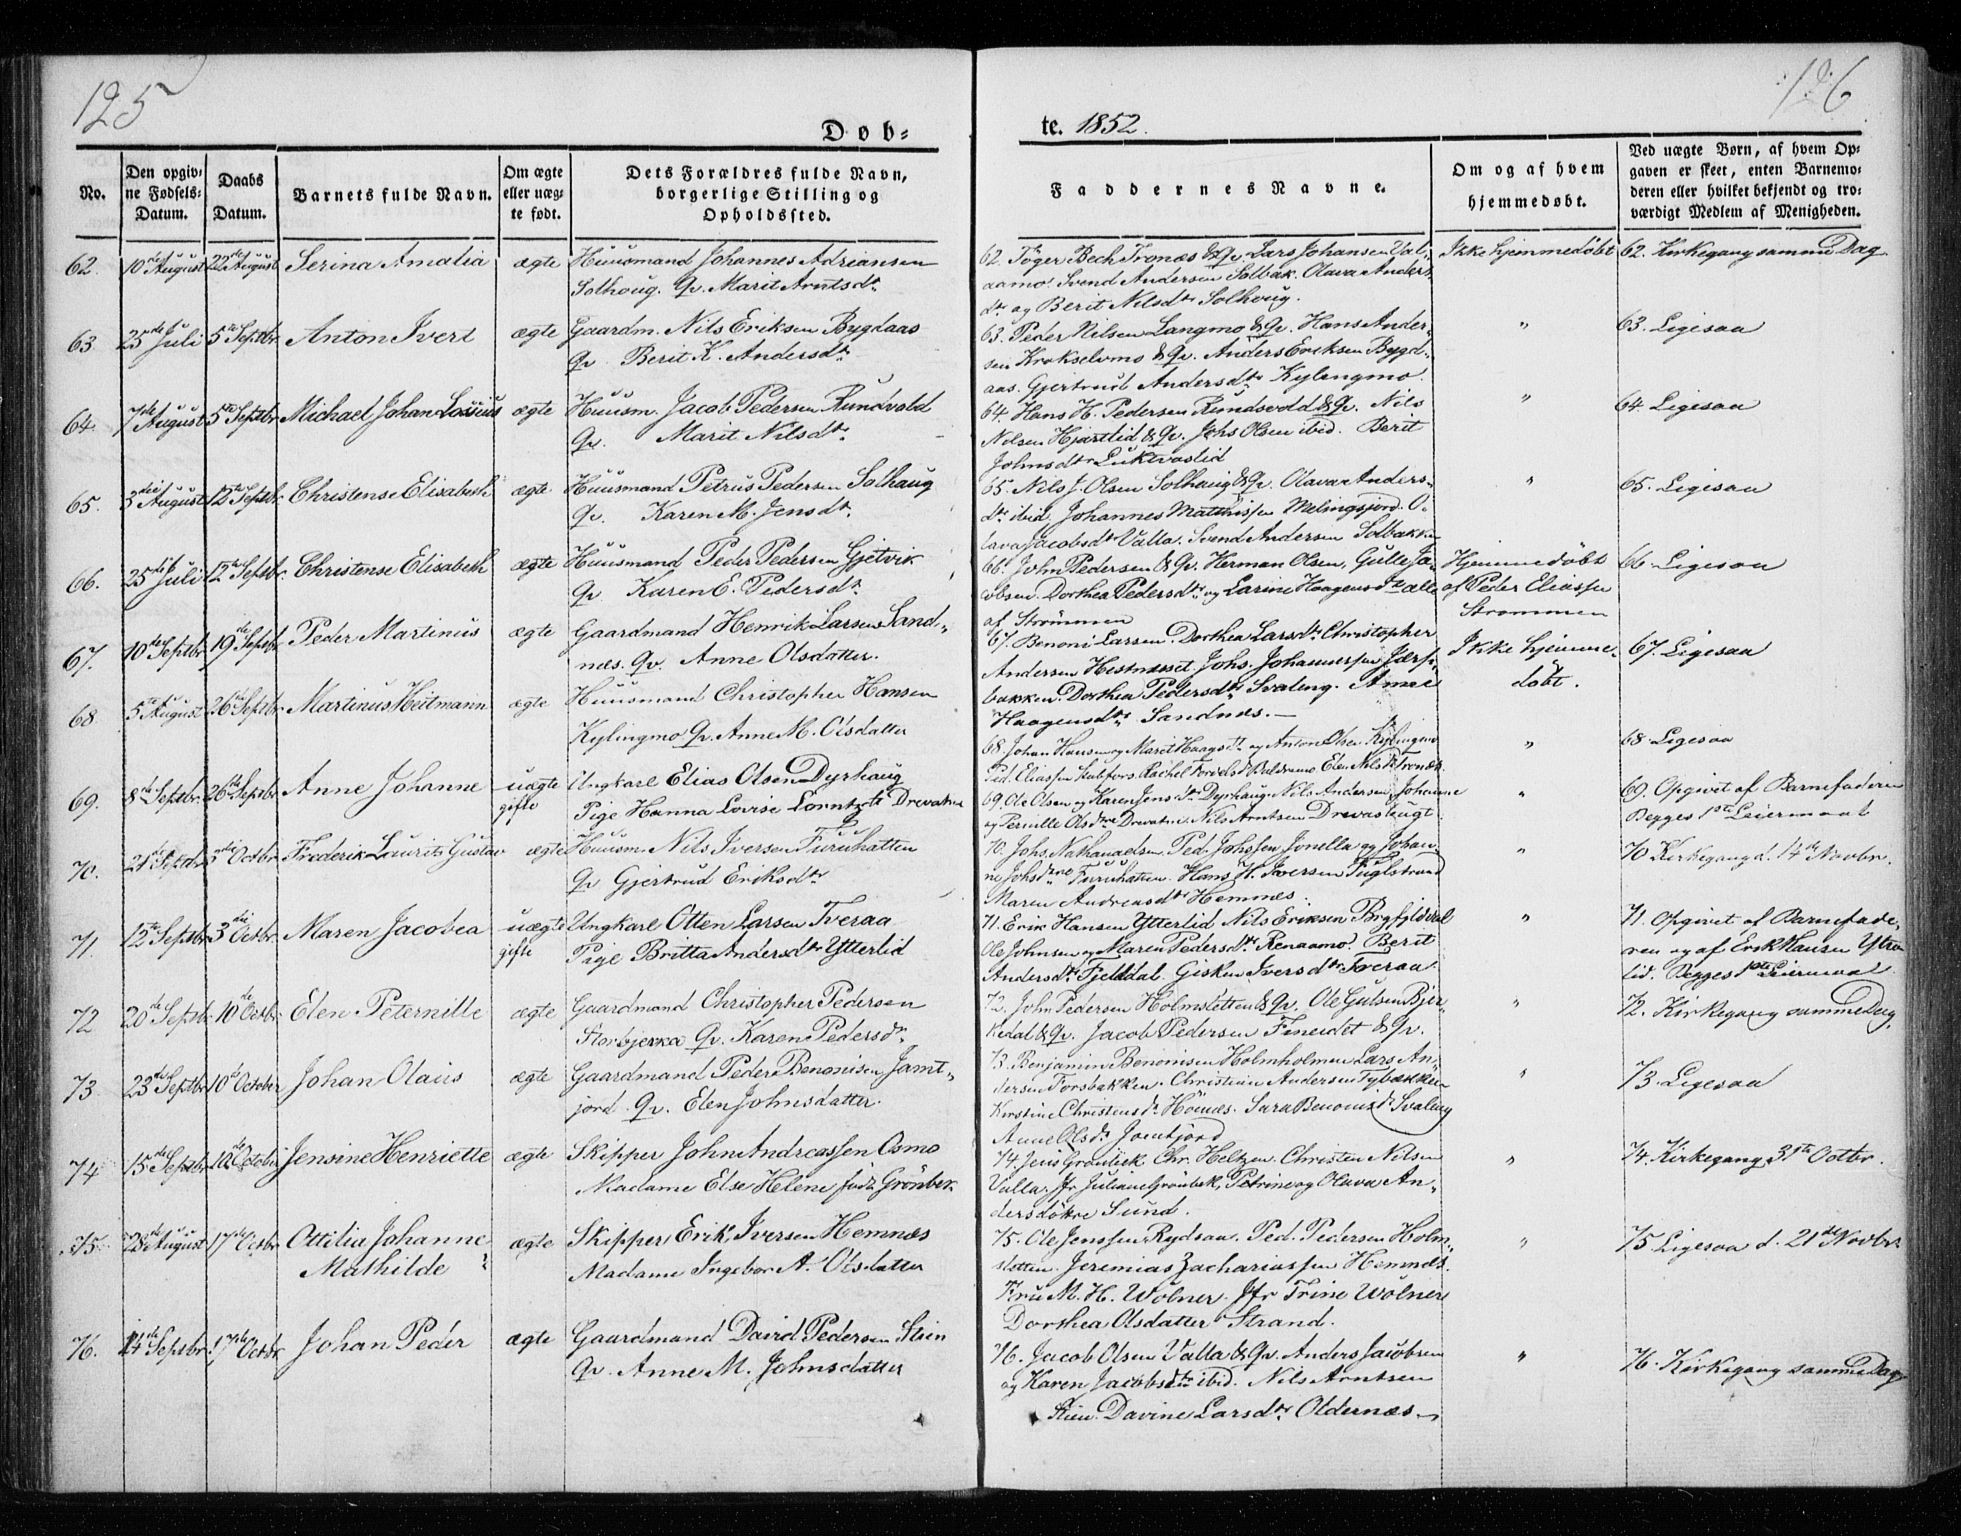 125
126
Døb-
te. 1852.
No.
Den opgiv-
ne Fødsels-
Datum.
Daabs
Datum.
Barnets fulde Navn.
Om ægte
eller uæg-
te født.
Dets Forældres fulde Navn,
borgerlige Stilling og
Opholdssted.
Faddernes Navne.
Om og af hvem
hjemmedøbt.
Ved uægte Børn, af hvem Op-
gaven er skeet, enten Barnemo-
deren eller hvilket bekjendt og tro-
værdigt Medlem af Menigheden.
62. 10de August 22de August Serina Amalia ægte Huusmand Johannes Adriansen
Solhoug. Qv. Marit Arntsdtr
62. Töger Bech Tronæs & Qv. Lars Johansen Val-
aamo. Svend Andersen Solbak. Olava Anders
dtr og Berit Nilsdtr Solhoug.
Ikke hjemmedøbt
62. Kirkegang samme Dag
63. 25de Juli 5te Septbr Anton Ivert ægte Gaardm. Nils Eriksen Bygdaas
Qv. Berit K. Andersdtr
63. Peder Nilsen Langmo & Qv. Hans Ander-
sen Krokselvmo & Qv. Anders Eriksen Bygd-
aas. Gjertrud Andersdtr Kylingmo.
"
63. Ligesaa
64. 7de August 5te Septbr Michael Johan Lossius ægte Huusm. Jacob Pedersen Rundvold
Qv. Marit Nilsdtr.
64. Hans H. Pedersen Rundsvold & Qv. Nils
Nilsen Hjartlid & Qv. Johs Olsen ibid. Berit
Johnsdtr Luktvaslid
"
64. Ligesaa
65. 3die August 12te Septbr. Christense Elisabeth ægte Huusmand Petrus Pedersen Solhaug
Qv. Karen M. Jensdtr.
65. Nils J. Olsen Solhaug & Qv. Olava Anders-
dtr ibid. Johannes Matthissen Melingsfjord. O-
lava Jacobsdtr Valla. Svend Andersen Solbakken
"
65. Ligesaa
66. 25de Juli 12te Septbr. Christense Elisabeth ægte Huusmand Peder Pedersen Gjetvik
Qv Karen E. Pedersdtr.
66. John Pedersen & Qv. Herman Olsen, Gulle Ja-
cobsen. Dorthea Pedersdtr og Larine Haagensdtr alle
af Strömmen
Hjemmedöbt
af Peder Eliassen
Strømmen
66. Ligesaa
67. 10de Septbr 19de Septbr Peder Martinus ægte Gaardmand Henrik Larsen Sand-
næs. Qv. Anne Olsdatter.
67. Benoni Larsen. Dorthea Larsdtr Christopher
Andersen Hestnæsset. Johs. Johannessen Jærp-
bakken. Dorthea Pedersdtr Svaleng. Anne
Haagensdtr Sandnæs.
Ikke hjemme-
döbt.
67. Ligesaa
68. 5te August 26de Septbr Martinus Heitmann ægte Huusmand Christopher Hansen
Kylingmo Qv. Anne M. Olsdatter
68. Johan Hansen og Maret Haagsdtr og Anton Olsen Kylingmo
Ped. Eliassen Rachel Elen Nilsdtr Tronæs.
"
68. Ligesaa
69. 8de Septbr. 26de Septbr. Anne Johanne uægte
gifte
Ungkarl Elias Olsen Dyrhaug
Pige Hanna Lovise Lorntzdtr Drevatne
69. Ole Olsen og Karen Jensdtr Dyrhaug. Nils Andersen, Johanne
og Pernille Olsdtre Drevatne. Nils Arntsen Drevasleugt.
"
69. Opgivet af Barnefaderen
Begges 1ste Leiermaal
70. 21de Septbr 3die Octbr. Frederik Laurits Gustav ægte Huusm. Nils Iversen Furuhatten
Qv Gjertrud Eriksdtr
70. Johs. Nathanaelsen. Ped. Johssen Jonella og Johan-
ne Johsdtre Furuhatten. Hans H. Iversen Fuglstrand
Maren Andreasdtr Hemnes.
"
70. Kirkegang d. 14de Novbr.
71. 12te Septbr. 3die Octbr. Maren Jacobea uægte
gifte
Ungkarl Otten Larsen Tveraa
Pige Britta Andersdtr Ytterlid
71. Erik Hansen Ytterlid Nils Eriksen Brygfjeldal
Ole Johnsen og Maren Pedersdtr Renaamo. Berit
Andersdtr Fjelddal. Gisken Iversdtr Tveraa.
"
71. Opgivet af Barnefade-
ren og af Erik Hansen Ytre
lid. Begges 1ste Leiermaal
72 20de Septbr 10de Octbr. Elen Peternille ægte Gaardmand Christopher Pedersen
Storbjerka Qv. Karen Pedersdtr.
72. John Pedersen Holmsletten & Qv. Ole Gulsen Bjer-
kedal & Qv. Jacob Pedersen Fineidet & Qv.
"
72. Kirkegang samme Dag,
73. 23de Septbr 10de October Johan Olaus ægte Gaardmand Peder Benonisen Jamt-
jord. Qv. Elen Johnsdatter.
73. Benjamin Benonisen Holmholmen Lars An-
dersen Forsbakken. Christian Andersen Tybækken
Kirstine Christensdtr Hönnæs. Sara Benonisdtr Svaleng
Anne Olsdtr Jamtjord
"
73. Ligesaa
74. 15de Septbr 10de October Jensine Henriette ægte Skipper John Andreassen Osmo
Madame Else Helene født Grönbek
74. Jens Grönbek Chr. Heltzen. Christen Nilsen
Valla. Jfr Juliane Grönbek, Petrine og Olava An-
dersdøttre Sund.
"
74. Kirkegang 31te Octbr.
75. 28de August 17de Octbr. Ottilia Johanne
Mathilde
ægte Skipper Erik Iversen Hemnæs
Madame Ingebor A. Olsdatter
75. Ole Jenssen Rydsaa. Ped. Pedersen Holm-
sletten. Jeremias Zachariassen Hemnæs.
Fru M. H. Wolner. Jfr Trine Wolner
Dorthea Olsdatter Strand.
"
75 Ligesaa d. 21de Novbr
76. 14de Septbr. 17de Octbr. Johan Peder ægte Gaardmand David Pedersen Stien
Qv. Anne M. Johnsdatter
76. Jacob Olsen Valla & Qv. Anders Jacobsen
og Karen Jacobsdtr ibid. Nils Arntsen
Stien. Davine Larsdtr Oldernæs.
"
76. Kirkegang samme Dag